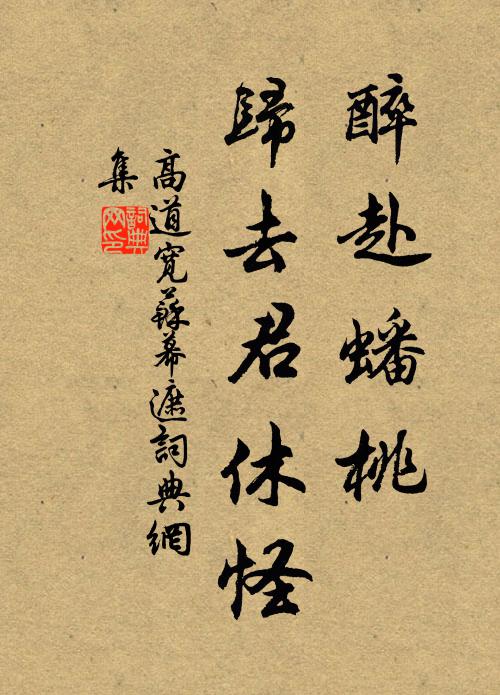 醉赴蟠桃
歸去君休怪
高道寬蘇幕遮詞典網
集
詞典網印